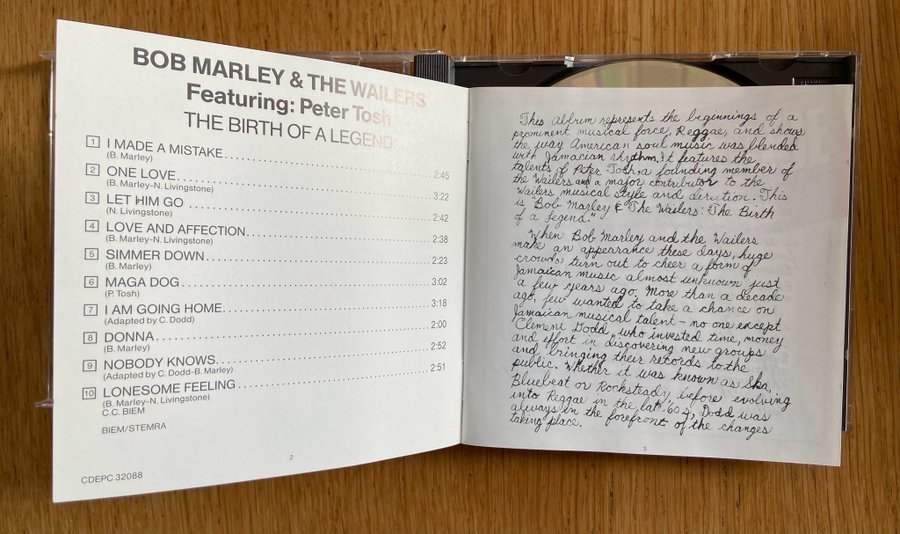 BOB MARLEY & THE WAILERS
Featuring: Peter Tosh
THE BIRTH OF A LEGEND
1 I MADE A MISTAKE 2:45
(B. Marley)
2 ONE LOVE 3:22
(B. Marley-N. Livingstone)
3 LET HIM GO 2:42
(N. Livingstone)
4 LOVE AND AFFECTION 2:38
(B. Marley-N. Livingstone)
5 SIMMER DOWN 2:23
(B. Marley)
6 MAGA DOG 3:02
(P. Tosh)
7 I AM GOING HOME 3:18
(Adapted by C. Dodd)
8 DONNA 2:00
(B. Marley)
9 NOBODY KNOWS 2:52
(Adapted by C. Dodd-B. Marley)
10 LONESOME FEELING 2:51
(B. Marley-N. Livingstone)
C.C. BIEM
BIEM/STEMRA
2
CDEPC 32088
This Album represents the beginnings of a
prominent musical force, Reggae, and shows
the way American soul music was blended
with Jamacian rhythm, it features the
talents of Peter Tosh, a founding member of
the Wailers and a major contributor to the
Wailers musical style and direction. This
is "Bob Marley & The Wailers: The Birth
of a Legend."
When Bob Marley and the Wailers
make an appearance these days, huge
crowds turn out to cheer a form of
Jamaican music almost unknown just
a few years ago. More than a decade
ago, few wanted to take a chance on
Jamaican musical talent - no one except
Clement Dodd, who invested time, money
and effort in discovering new groups
and bringing their records to the
public. Whether it was known as Ska,
Bluebeat or Rocksteady before evolving
into Reggae in the late '60s, Dodd was
always in the forefront of the changes
taking place.
3